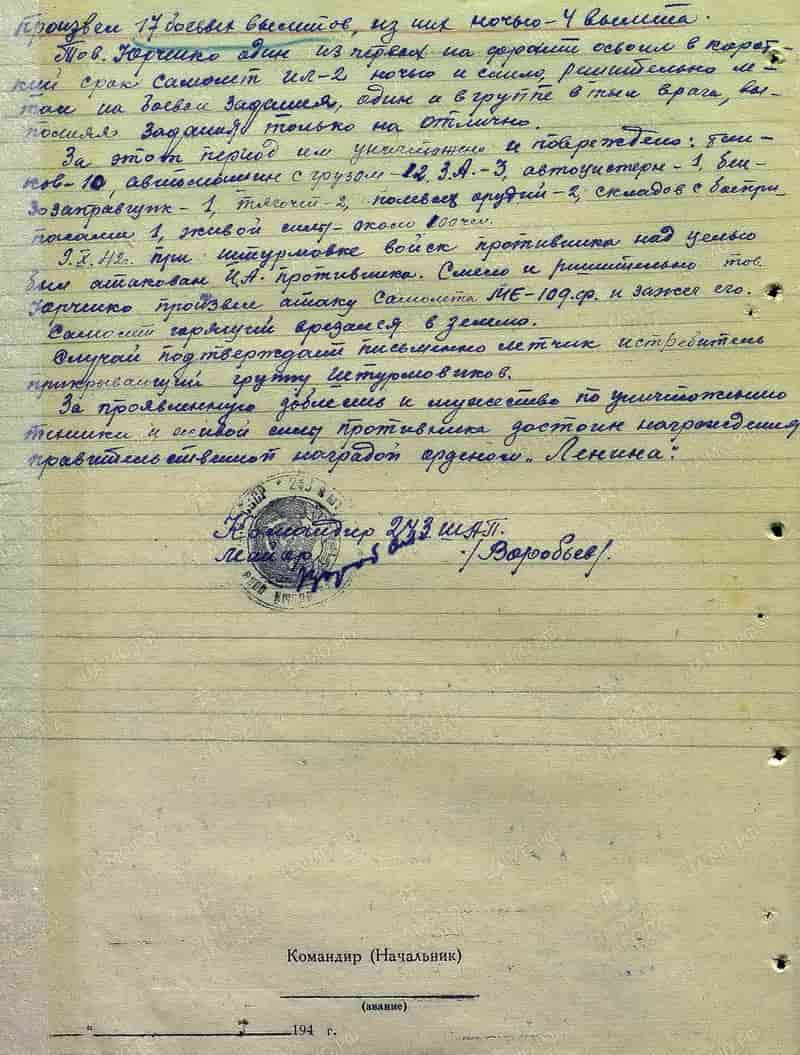 произвел 17 боевых вылетов, из них ночью - 4 вылета.
Тов. Юрченко один из первых на фронте освоил в корот-
кий срок самолет ИЛ-2 ночью и смело, решительно ле-
тал на боевые задания, один и в группе в тыл врага, вы-
полняя задания только на отлично.
За этот период им уничтожено и повреждено: тан-
ков-10, автомашин с грузом - 12, З.А.-3, автоцистерн-1, бен-
зозаправщик-1, тягочей-2, полевых орудий-2, складов с боепри-
пасами 1, живой силы - около 100 чел.
9.X.42г. при штурмовке войск противника над целью
был атакован И.А. противника. Смело и решительно тов.
Юрченко произвел атаку самолета МЕ-109.ф. и зажег его.
Самолет горящий врезался в землю.
Случай подтверждает письменно летчик истребитель
прикрывающий группу штурмовиков.
За проявленную доблесть и мужество по уничтожению
техники и живой силы противника достоин награждения
правительственной наградой орденом „Ленина".
Командир 243 ШАП.
Майор /Воробьев/.
Командир (Начальник)
(звание)
„ " 194 г.